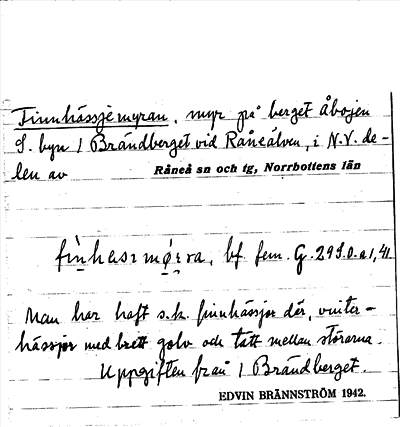 Finnhässjemyran, myr på berget Åbojen
S. byn 1 Brändberget vid Råneälven, i N.V. de-
len av Råneå sn och tg, Norrbottens län
bf. fem. G. 29 S.O. a 1, 41
Man har haft s.k. finnhässjor där, vinter-
hässjor med brett golv och tätt mellan störarna.
Uppgiften från 1 Brändberget.
EDVIN BRÄNNSTRÖM 1942.